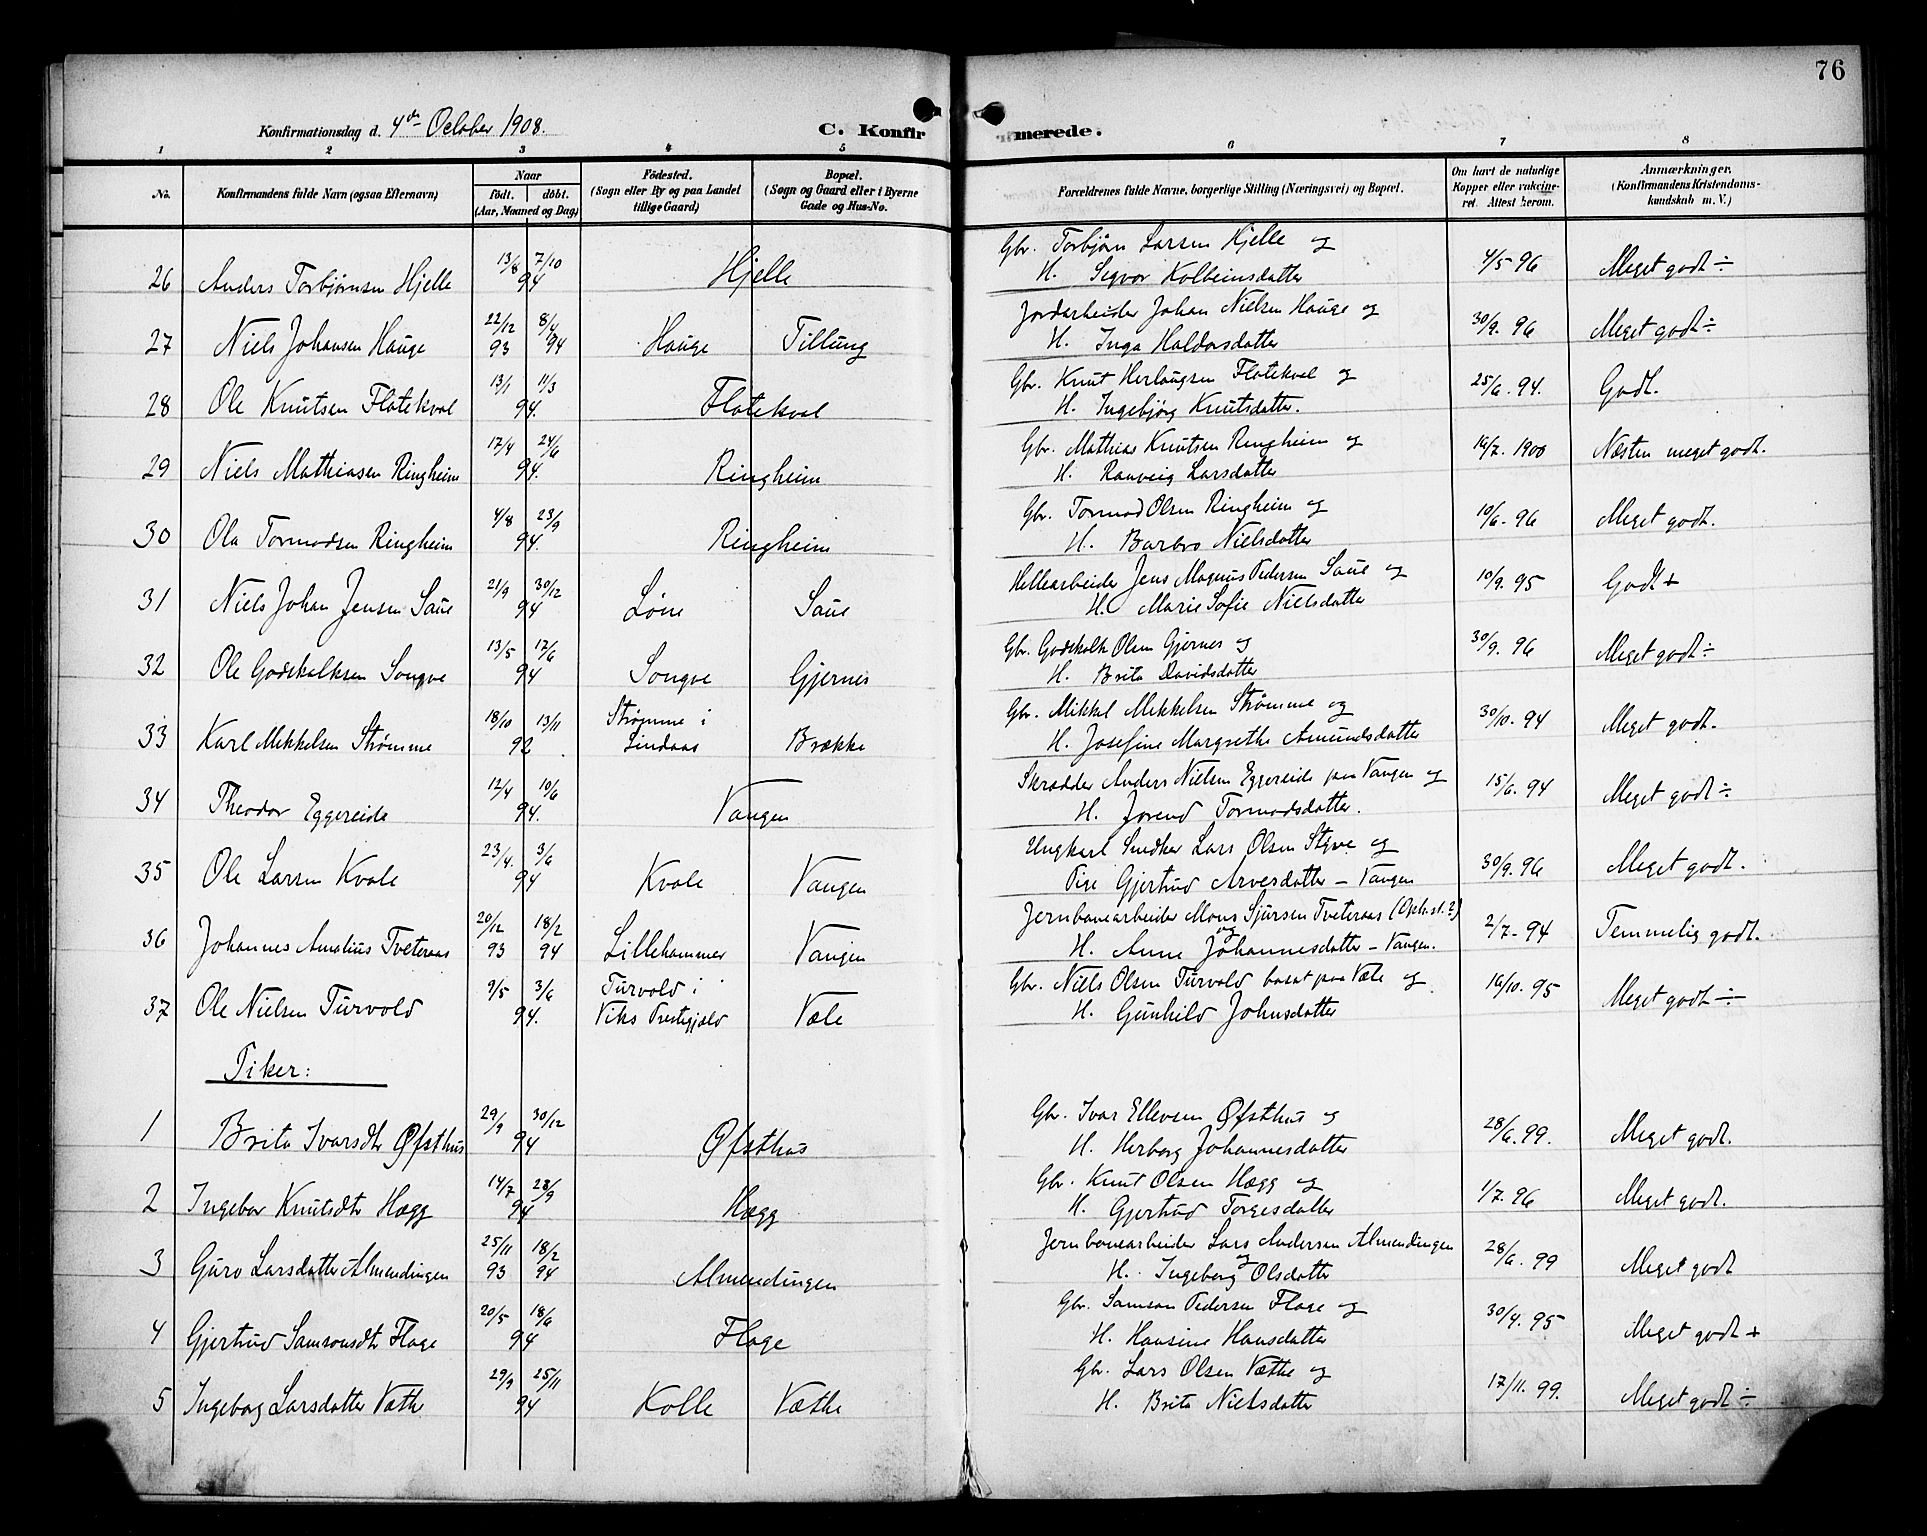 76
Konfirmationsdag d. 4de October 1908.
C. Konfirmerede.
1 2 3 4 5 6 7 8
No. | Konfirmandens fulde Navn (ogsaa Efternavn) | Naar født. døbt. (Aar, Maaned og Dag) | Fødested. (Sogn eller By og paa Landet tillige Gaard) | Bopæl. (Sogn og Gaard eller i Byerne Gade og Hus-No. | Forældrenes fulde Navne, borgerlige Stilling (Næringsvei) og Bopæl. | Om havt de naturlige Kopper eller vakcineret. Attest herom. | Anmærkninger. (Konfirmandens Kristendomskundskab m. V.)
26 Anders Torbjørnsen Hjelle 13/8 7/10 94 Hjelle Gbr. Torbjørn Larsen Hjelle og H. Segvor Kolbeinsdatter 4/5 96 Meget godt ÷
27 Niels Johansen Hauge 22/12 93 8/4 94 Hauge Tillung Jordarbeider Johan Nielsen Hauge og H. Inga Haldorsdatter 30/9. 96 Meget godt ÷
28 Ole Knutsen Flatekval 13/1 11/3 94. Flatekval Gbr. Knut Herlaugsen Flatekval og H. Ingebjørg Knutsdatter. 25/6. 94. Godt.
29 Niels Mathiasen Ringheim 17/4 24/6 94. Ringheim Gbr. Mathias Knutsen Ringheim og H. Ranveig Larsdatter 16/7. 1900 Næsten meget godt.
30 Ola Tormodsen Ringheim 4/8 23/9 94. Ringheim Gbr. Tormod Olsen Ringheim og H. Barbro Nielsdatter 10/6 - 96 Meget godt.
31 Niels Johan Jensen Saue 21/9 30/12 94 Løne Saue Hellearbeider Jens Magnus Pedersen Saue og H. Marie Sofie Nielsdatter 10/9. 95 Godt +
32 Ole Godskalksen Songve 13/5 17/6 94 Songve Gjernes Gbr. Godskalk Olsen Gjernes og H. Brita Davidsdatter 30/9. 96 Meget godt ÷
33 Karl Mikkelsen Strømme 18/10 13/11 92. Strømme i Lindaas Brække Gbr. Mikkel Mikkelsen Strømme og H. Josefine Margrethe Amundsdatter 30/10. 94 Meget godt.
34 Theodor Eggereide 12/4 10/6 94. Vangen Skrædder Anders Nielsen Eggereide paa Vangen og H. Jorend Tormodsdatter. 15/6. 94 Meget godt ÷
35 Ole Larsen Kvale 23/4. 3/6 94 Kvale Vangen Ungkarl Snedker Lars Olsen Styve og Pige Gjertrud Arvesdatter - Vangen 30/9. 96 Meget godt.
36 Johannes Amalius Tveteraas 20/12 93 18/2 94 Lillehammer Vangen Jernbanearbeider Mons Sjursen Tveteraas (Opholdst.?) og H. Anne Johannesdatter - Vangen. 2/7 - 94 Temmelig godt.
37 Ole Nielsen Turvold 9/5 3/6 94. Turvold i Viks Prestegjæld Væle Gbr. Niels Olsen Turvold bosat paa Væle og H. Gunhild Johnsdatter 16/10. 95 Meget godt ÷
Piker:
1 Brita Ivarsdtr Øfsthus 29/9 30/12 94 Øfsthus Gbr. Ivar Ellevsen Øfsthus og H. Herborg Johannesdatter 28/6. 99. Meget godt.
2 Ingebor Knutsdtr Hægg 14/7 23/9 94 Hægg Gbr. Knut Olsen Hægg og H. Gjertrud Torgesdatter 1/7. 96 Meget godt.
3 Guro Larsdatter Almendingen 25/11 93 18/2 94 Almendingen Jernbanearbeider Lars Andersen Almendingen og H. Ingeborg Olsdatter 28/6. 99 Meget godt
4 Gjertrud Samsonsdtr Flage 20/5 18/6 94 Flage Gbr. Samson Pedersen Flage og H. Hansine Hansdatter 30/4. 95 Meget godt +
5 Ingeborg Larsdatter Væthe 29/9 25/11 94 Kolle Væthe Gbr. Lars Olsen Væthe og H. Brita Nielsdatter 17/11. 99. Meget godt ÷